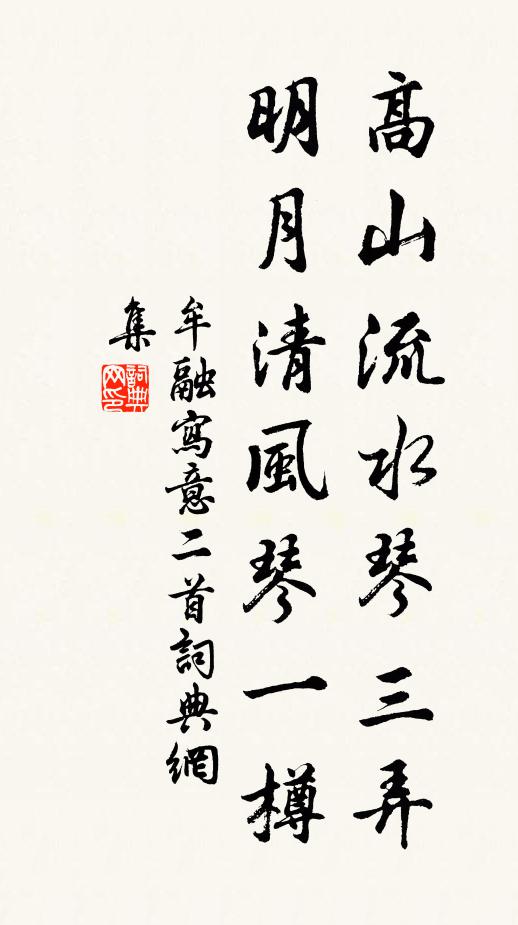 高山流水琴三弄
明月清風琴一樽
牟融寫意二首詞典網
集
詞典
网印